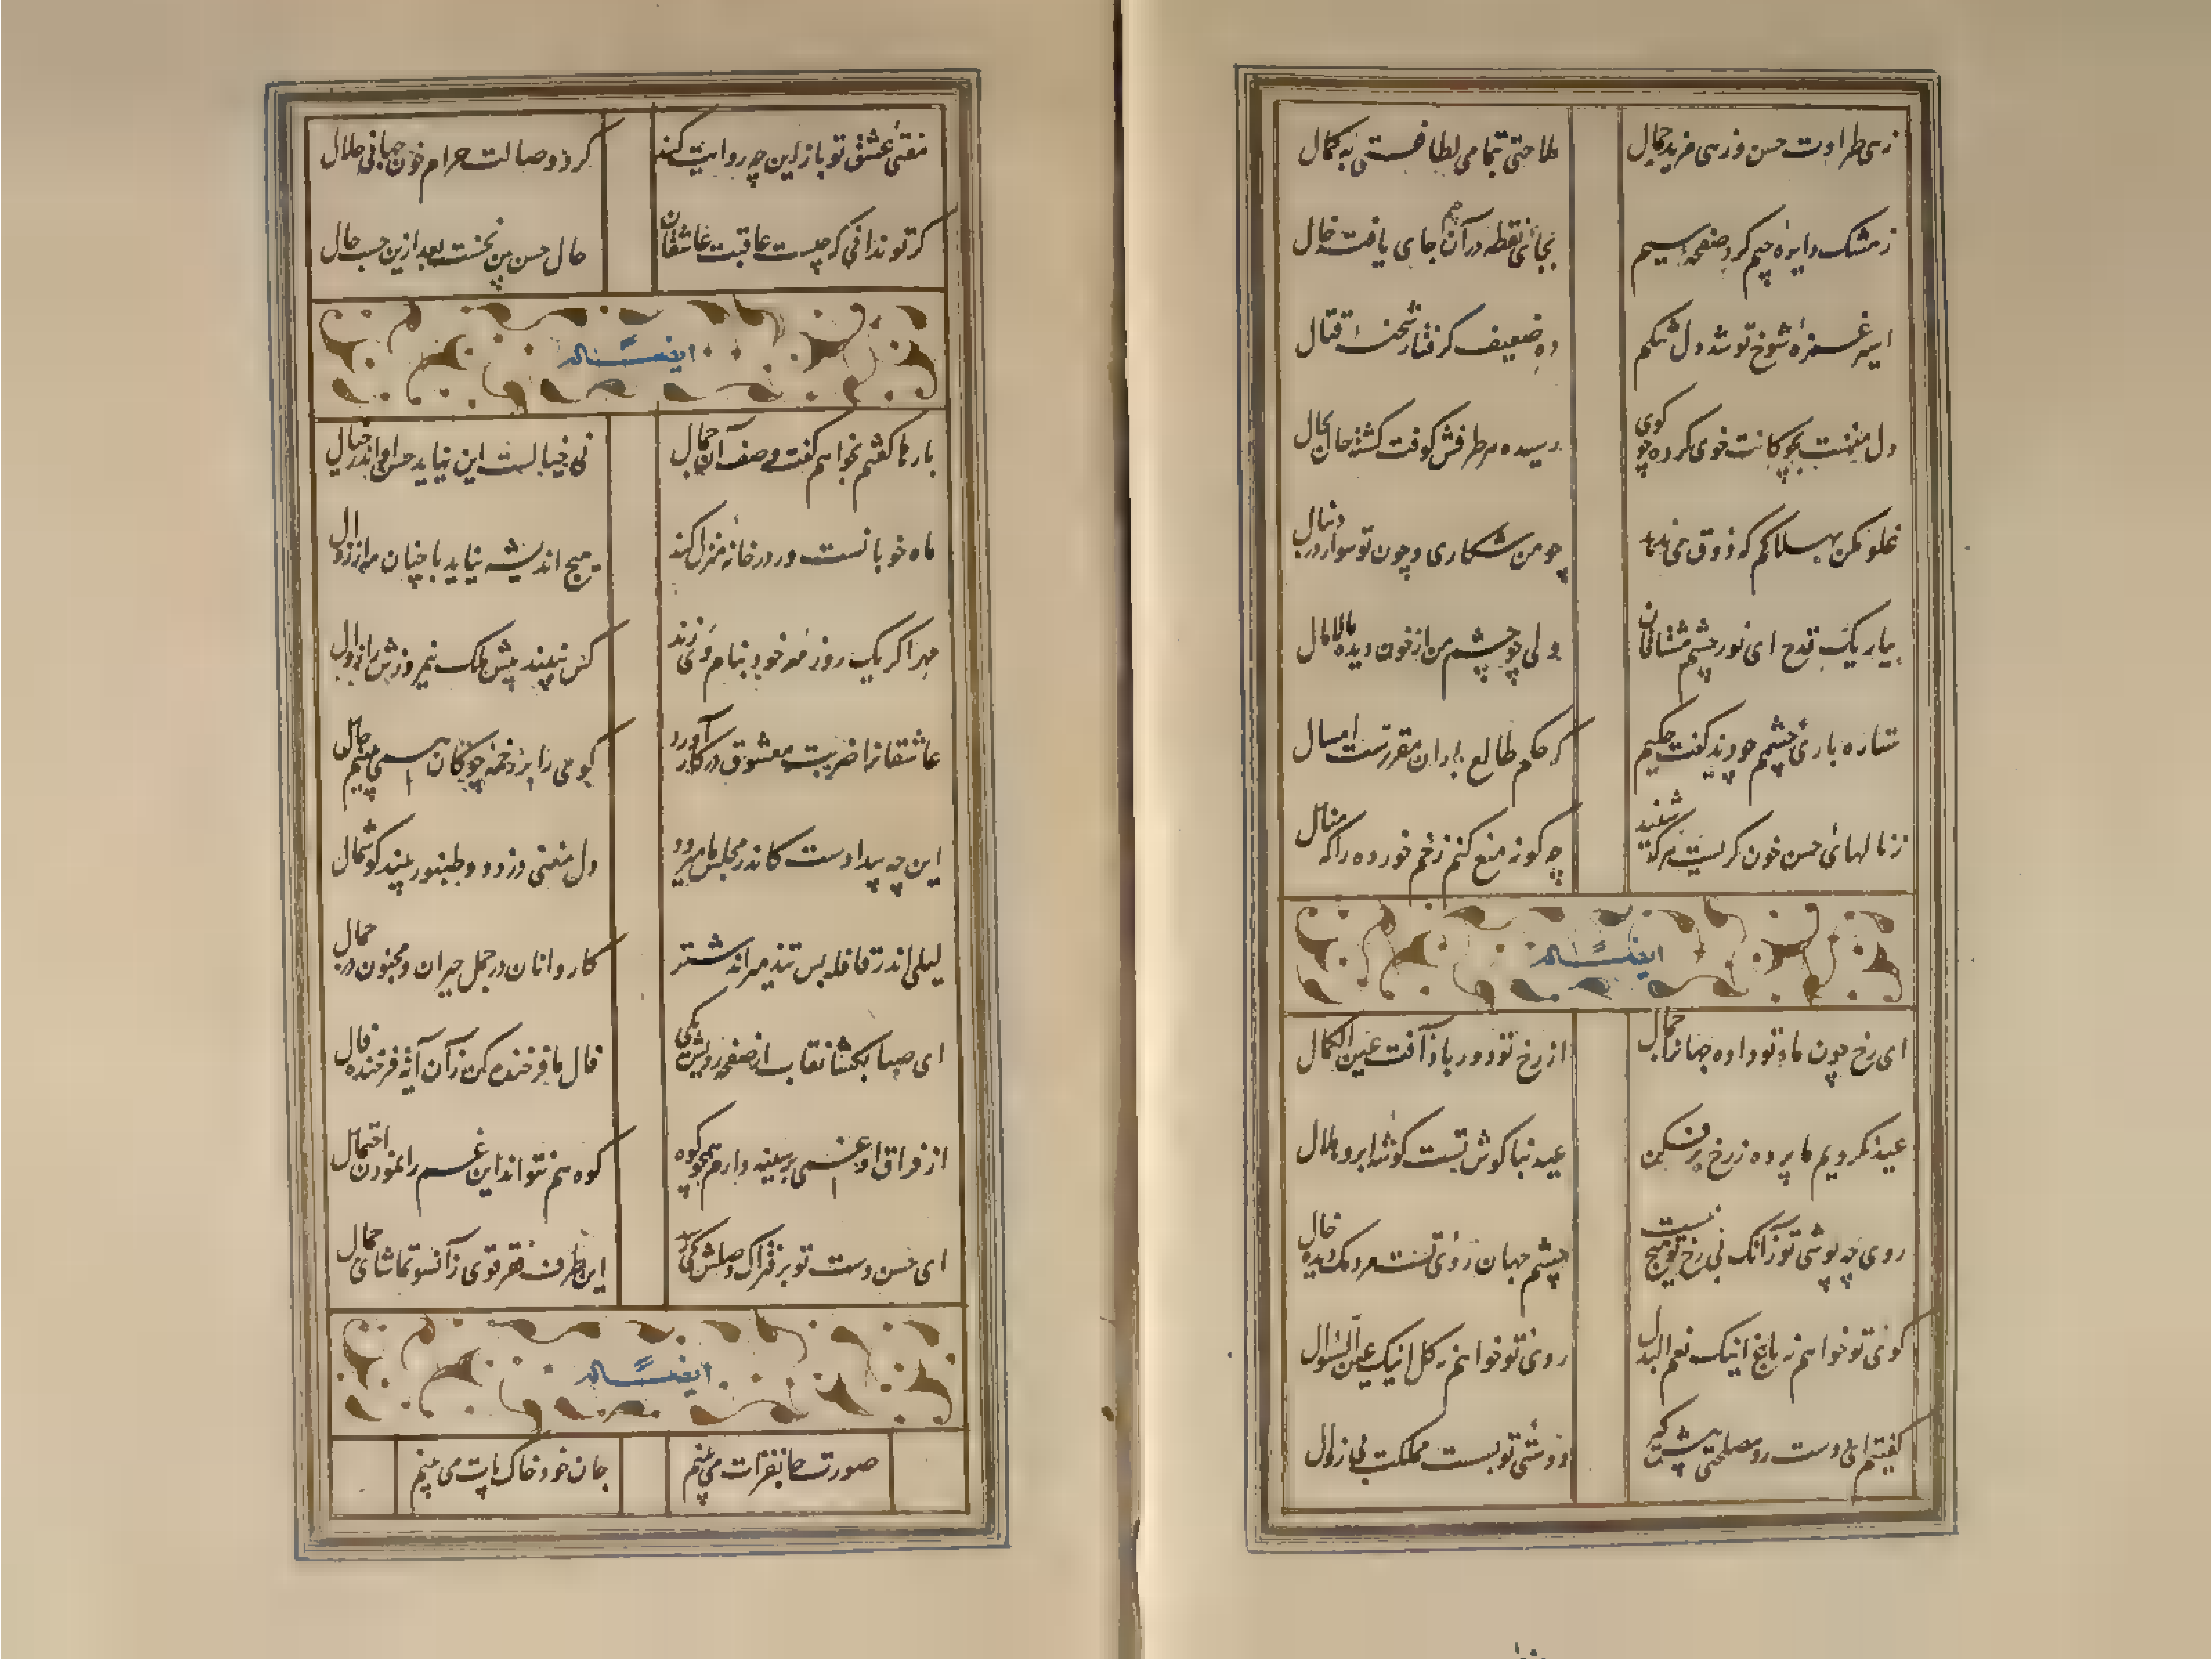 زهی طراوت حسن و زهی فرید جمال
ملاحتی بتمامی لطافستی به کمال
ز مشک دایره جیم کرد صفحه سیم
بجائی نقطه در آن جیم جای یافت خال
اسیر غمزه شوخ تو شد دل تنکم
ضعیف کرفتار قتال
دل منت بچوکانت خوی کرده چو کوی
رسیده هر طرفش کوفت کشته حال بحال
غلو مکن بهلاکم که ذوق می
چو من شکاری و چون تو سوار در دنبال
بیار یک قدح ای نور چشم مشتاقان
ولی چو چشم من از خون دیده مالامال
ستاره باری چشم چو دید کفت حکیم
که حکم طالع باران مقررست امسال
ز نالهائی حسن خون کریست هر که شنید
چه کونه منع کنم زخم خورده را که منال
ایضاً له
ای رخ چون ماه تو داده جهانرا جمال
از رخ تو دور باد آفت عین الکمال
عید نکردیم ما پرده ز رخ بر فکن
عید بناکوش تست کوشه ابرو هلال
روی چه پوشی تو زآنک بی رخ تو هیچ نیست
چشم جهان روئی تست مردمک دیده خال
کوئی تو خواهم نه باغ اینک نعم البدل
روئی تو خواهم نه کل اینک عین السؤال
کفتیم ای دوست رو مصلحتی پیش کیر
دوستی تو بست مملکت بی زوال
مفتی عشق تو باز این چه روایت کند
کرد وصالت حرام خون جهانی حلال
کر تو ندانی که چیست عاقبت عاشقان
حال حسن بین نخست بعد ازین حسب حال
ایضاً له
بارها کفتم نخواهم کفت وصف آن جمال
کی خیالست این نیاید حسن او اندر خیال
ماه خوبانست و در در خانه منزل کند
هیچ اندیشه نیاید با چنان مه از زوال
مه را کر یک روز مه خود بنام زند
کس نبیند پیش ملک نیم روزش را زوال
عاشقانرا ضربت معشوق در کار آورد
کوی را بر زخمه چوکان همی بینم حال
این چه بیدادست کاندر مجلس ما میرود
دل مغنی دزدد و طنبور بیند کوشمال
لیلی اندر قافله بس تند میراند شتر
کاروانان در جمل حیران و مجنون در جمال
ای صبا بکشا نقاب از صفحه رویش یکی
فال ما فرخنده کن زآن آیه فرخنده فال
از فراق او غمی بر سینه دارم همچو کوه
کوه هم نتواند این غم را نمودن احتمال
ای حسن دست تو بر فتراک وصلش کی رسد
این طرف فقر قوی زآنسو تماشای جمال
ایضاً له
صورت جانفزات می بینم
جان خود خاک پات می بینم